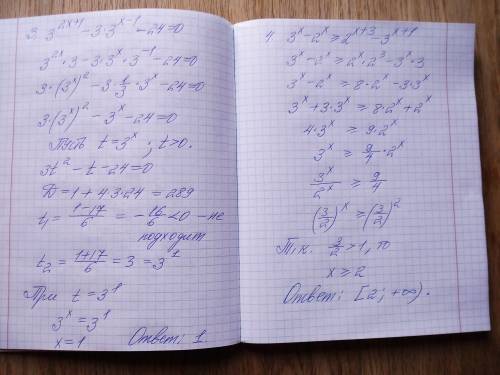 3. 3^{2x+1} - 3·3^{x-1} - 24=0
3^{2x}·3 - 3·3^x·3^{-1} - 24=0
3·(3^x)^2 - 3·\frac{1}{3}·3^x - 24=0
3·(3^x)^2 - 3^x - 24=0
Пусть t=3^x; t>0.
3t^2 - t - 24=0
D = 1 + 4·3·24 = 289
t_1 = \frac{1-17}{6} = -\frac{16}{6} <0 - не
подходит
t_2 = \frac{1+17}{6} = 3 = 3^1
При t=3^1
3^x=3^1
x=1 Ответ: 1.
4. 3^x - 2^x ≥ 2^{x+3} - 3^{x+1}
3^x - 2^x ≥ 2^x·2^3 - 3^x·3
3^x - 2^x ≥ 8·2^x - 3·3^x
3^x + 3·3^x ≥ 8·2^x + 2^x
4·3^x ≥ 9·2^x
3^x ≥ \frac{9}{4}·2^x
\frac{3^x}{2^x} ≥ \frac{9}{4}
(\frac{3}{2})^x ≥ (\frac{3}{2})^2
Т.к. \frac{3}{2} >1, то
x ≥ 2
Ответ: [2; +∞).